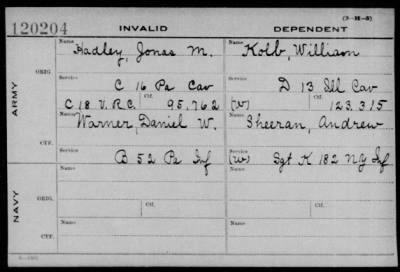 (3-H-5)
120204 INVALID DEPENDENT
Name Hadley, Jonas M. Name Kolb, William
ORIG. Service C 16 Pa Cav Service D 13 Ill Cav
ARMY C 18 V.R.C. Ctf. 95.762 (W) Ctf. 123.315
Name Warner, Daniel W. Name Sheeran, Andrew
CTF. Service B 52 Pa Inf Service (W) Sgt K 182 NY Inf
Name Name
ORIG.
NAVY Service Ctf. Service Ctf.
CTF.